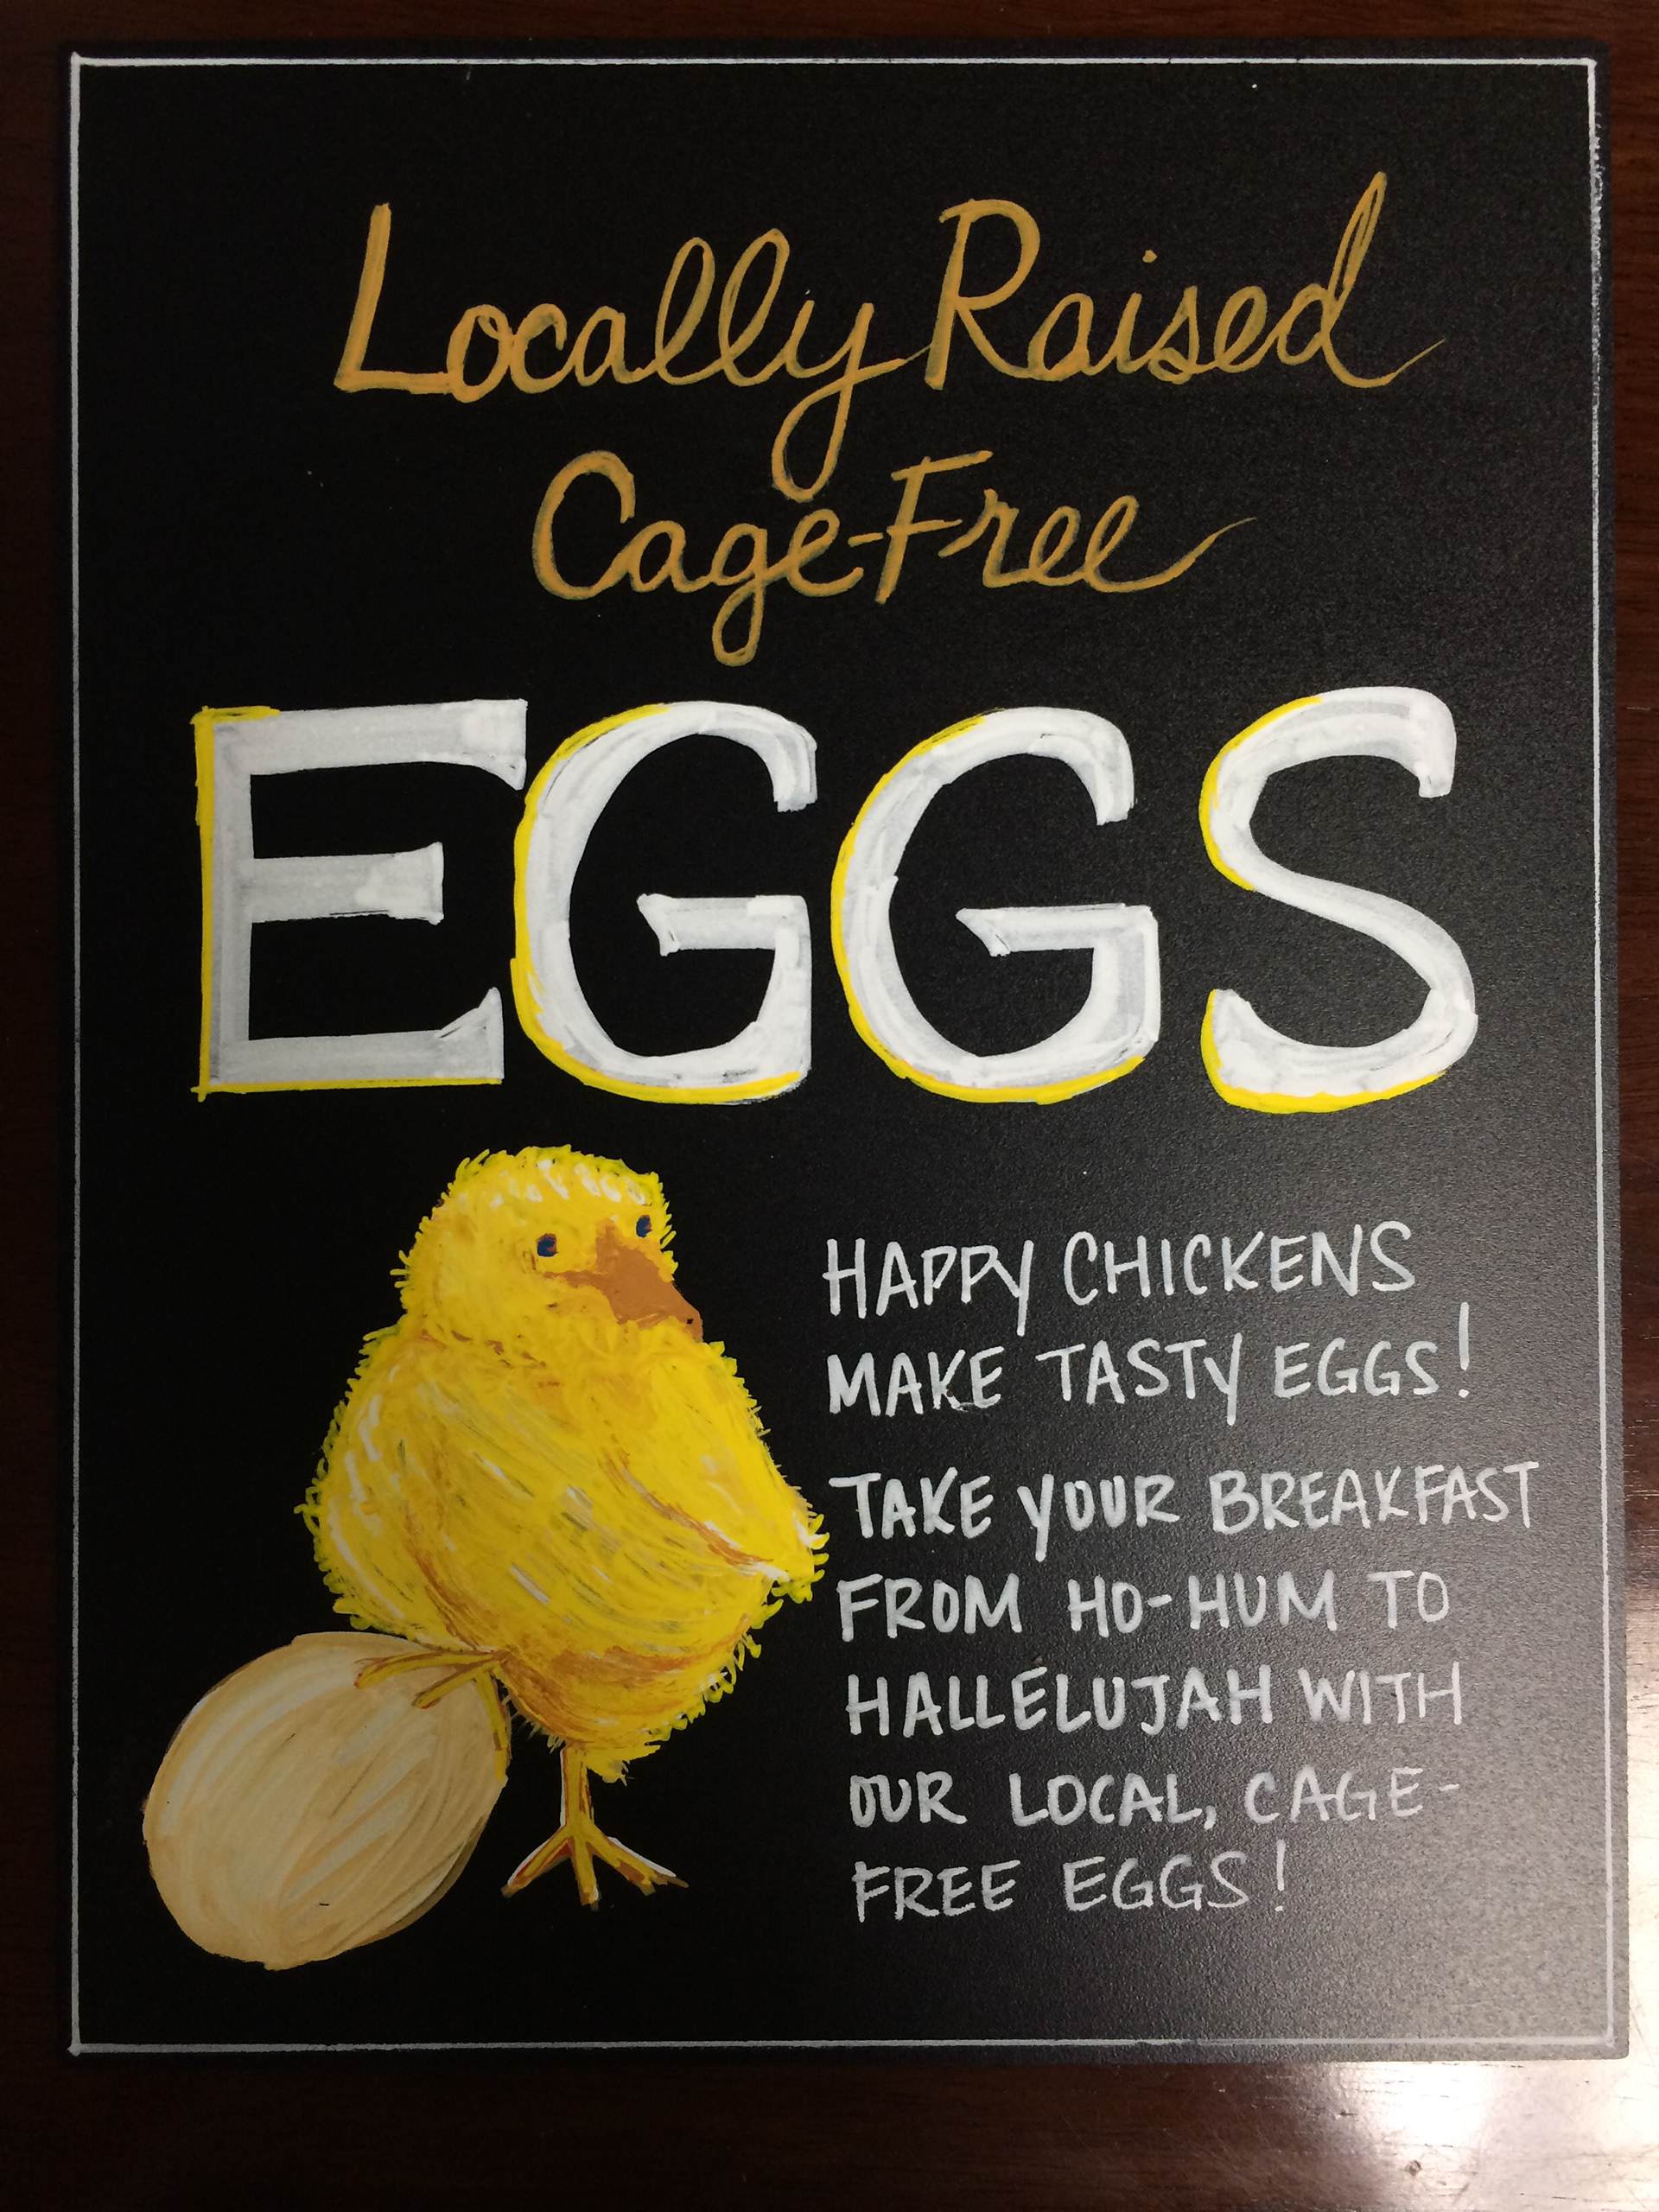 Locally Raised
Cage-Free
EGGS
HAPPY CHICKENS
MAKE TASTY EGGS!
TAKE YOUR BREAKFAST
FROM HO-HUM TO
HALLELUJAH WITH
OUR LOCAL, CAGE-
FREE EGGS!